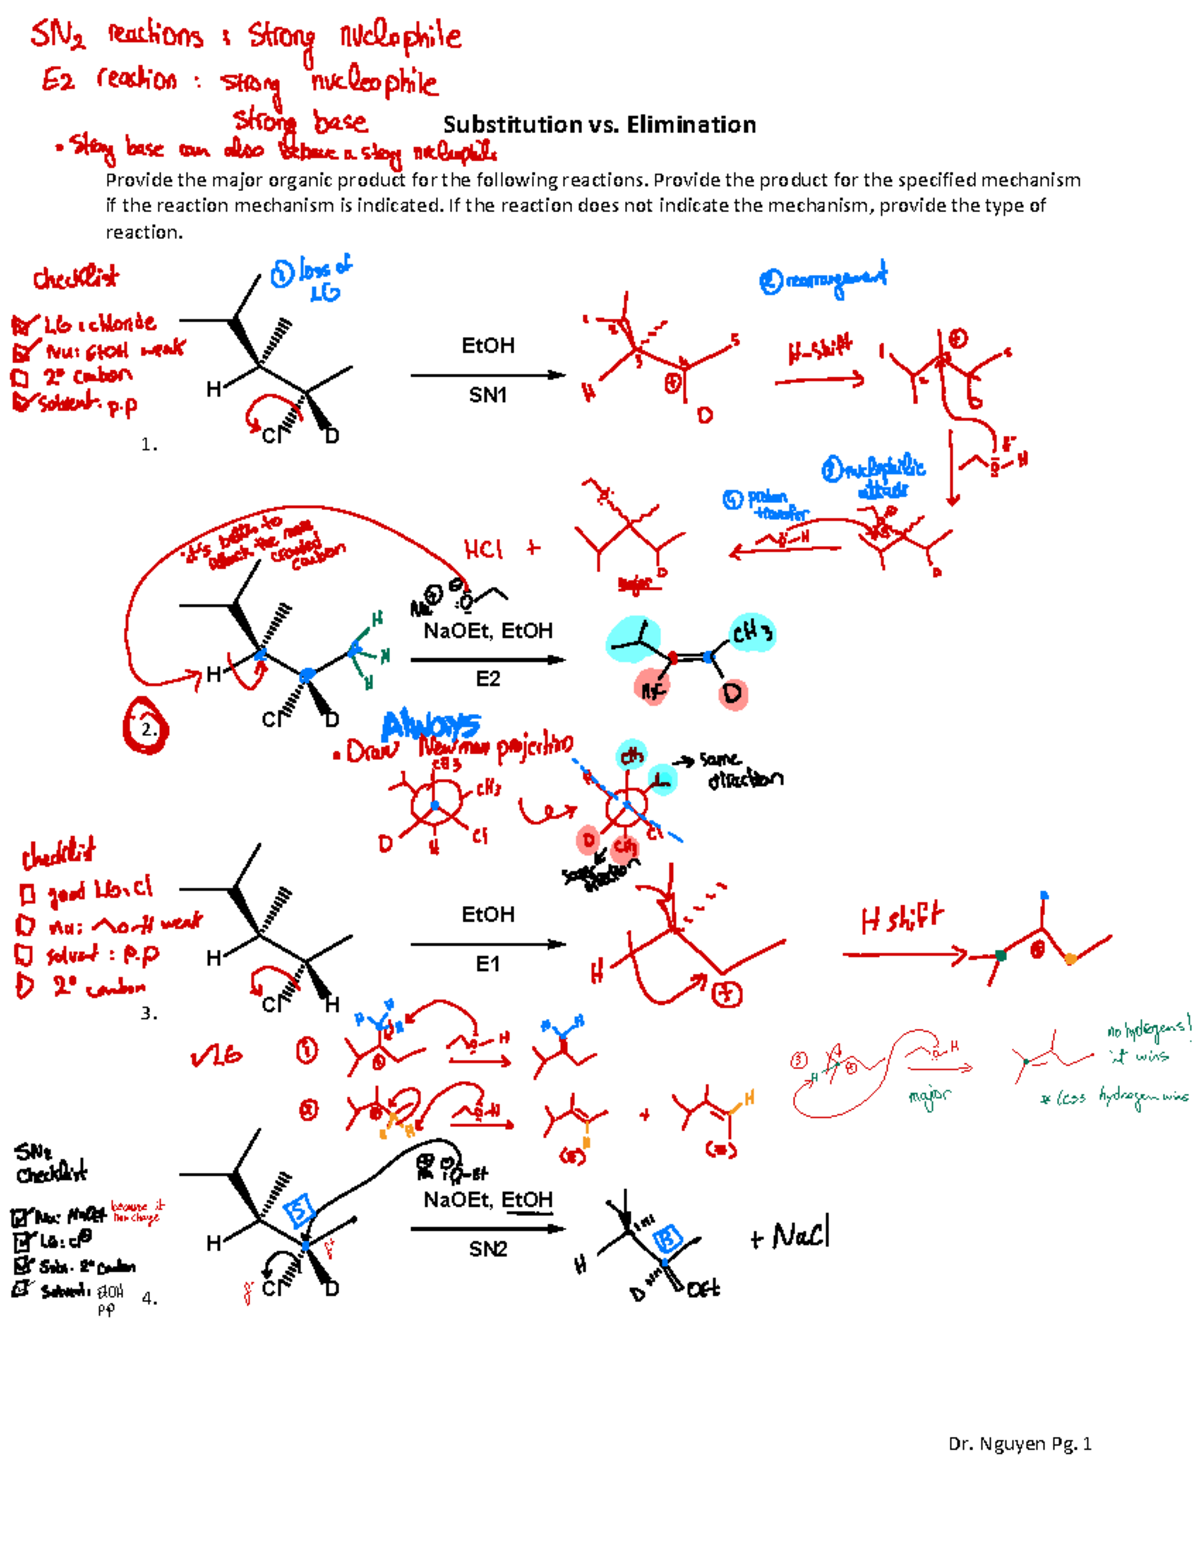 SN2 reactions : Strong nuclophile
E2 reaction : strong nucleophile
strong base
Substitution vs. Elimination
• Strong base can also behave a strong nucleophile
Provide the major organic product for the following reactions. Provide the product for the specified mechanism
if the reaction mechanism is indicated. If the reaction does not indicate the mechanism, provide the type of
reaction.
checklist
LG : chloride
Nu: EtOH weak
2° carbon
Solvent: p.p
① loss of
LG
H
Cl
D
1.
EtOH
SN1
1
2
3
4
5
H
D
② rearrangement
H-shift
H
③ nucleophilic
attack
④ proton
transfer
HCl +
Major
D
it's better to
attack the more
crowded
carbon
H
Cl
D
H
H
H
2.
Na
NaOEt, EtOH
E2
CH3
H3C
D
Always
• Draw Newman projection
CH3
CH3
D
H
Cl
CH3
D
CH3
Cl
→ same
direction
same
direction
checklist
good LG: Cl
Nu: O-H weak
solvent : p.p
2° carbon
H
Cl
H
3.
EtOH
E1
H
H shift
LG
①
②
③
H
major
no hydrogens!
it wins
* less hydrogen wins
+
(E)
(Z)
SN2
Checklist
Nu: NaOEt
because it
has charge
LG: Cl
Subs. 2° carbon
Solvent: EtOH
p.p
S
H
Cl
D
4.
NaOEt, EtOH
SN2
R
H
D
OEt
+ NaCl
Dr. Nguyen Pg. 1